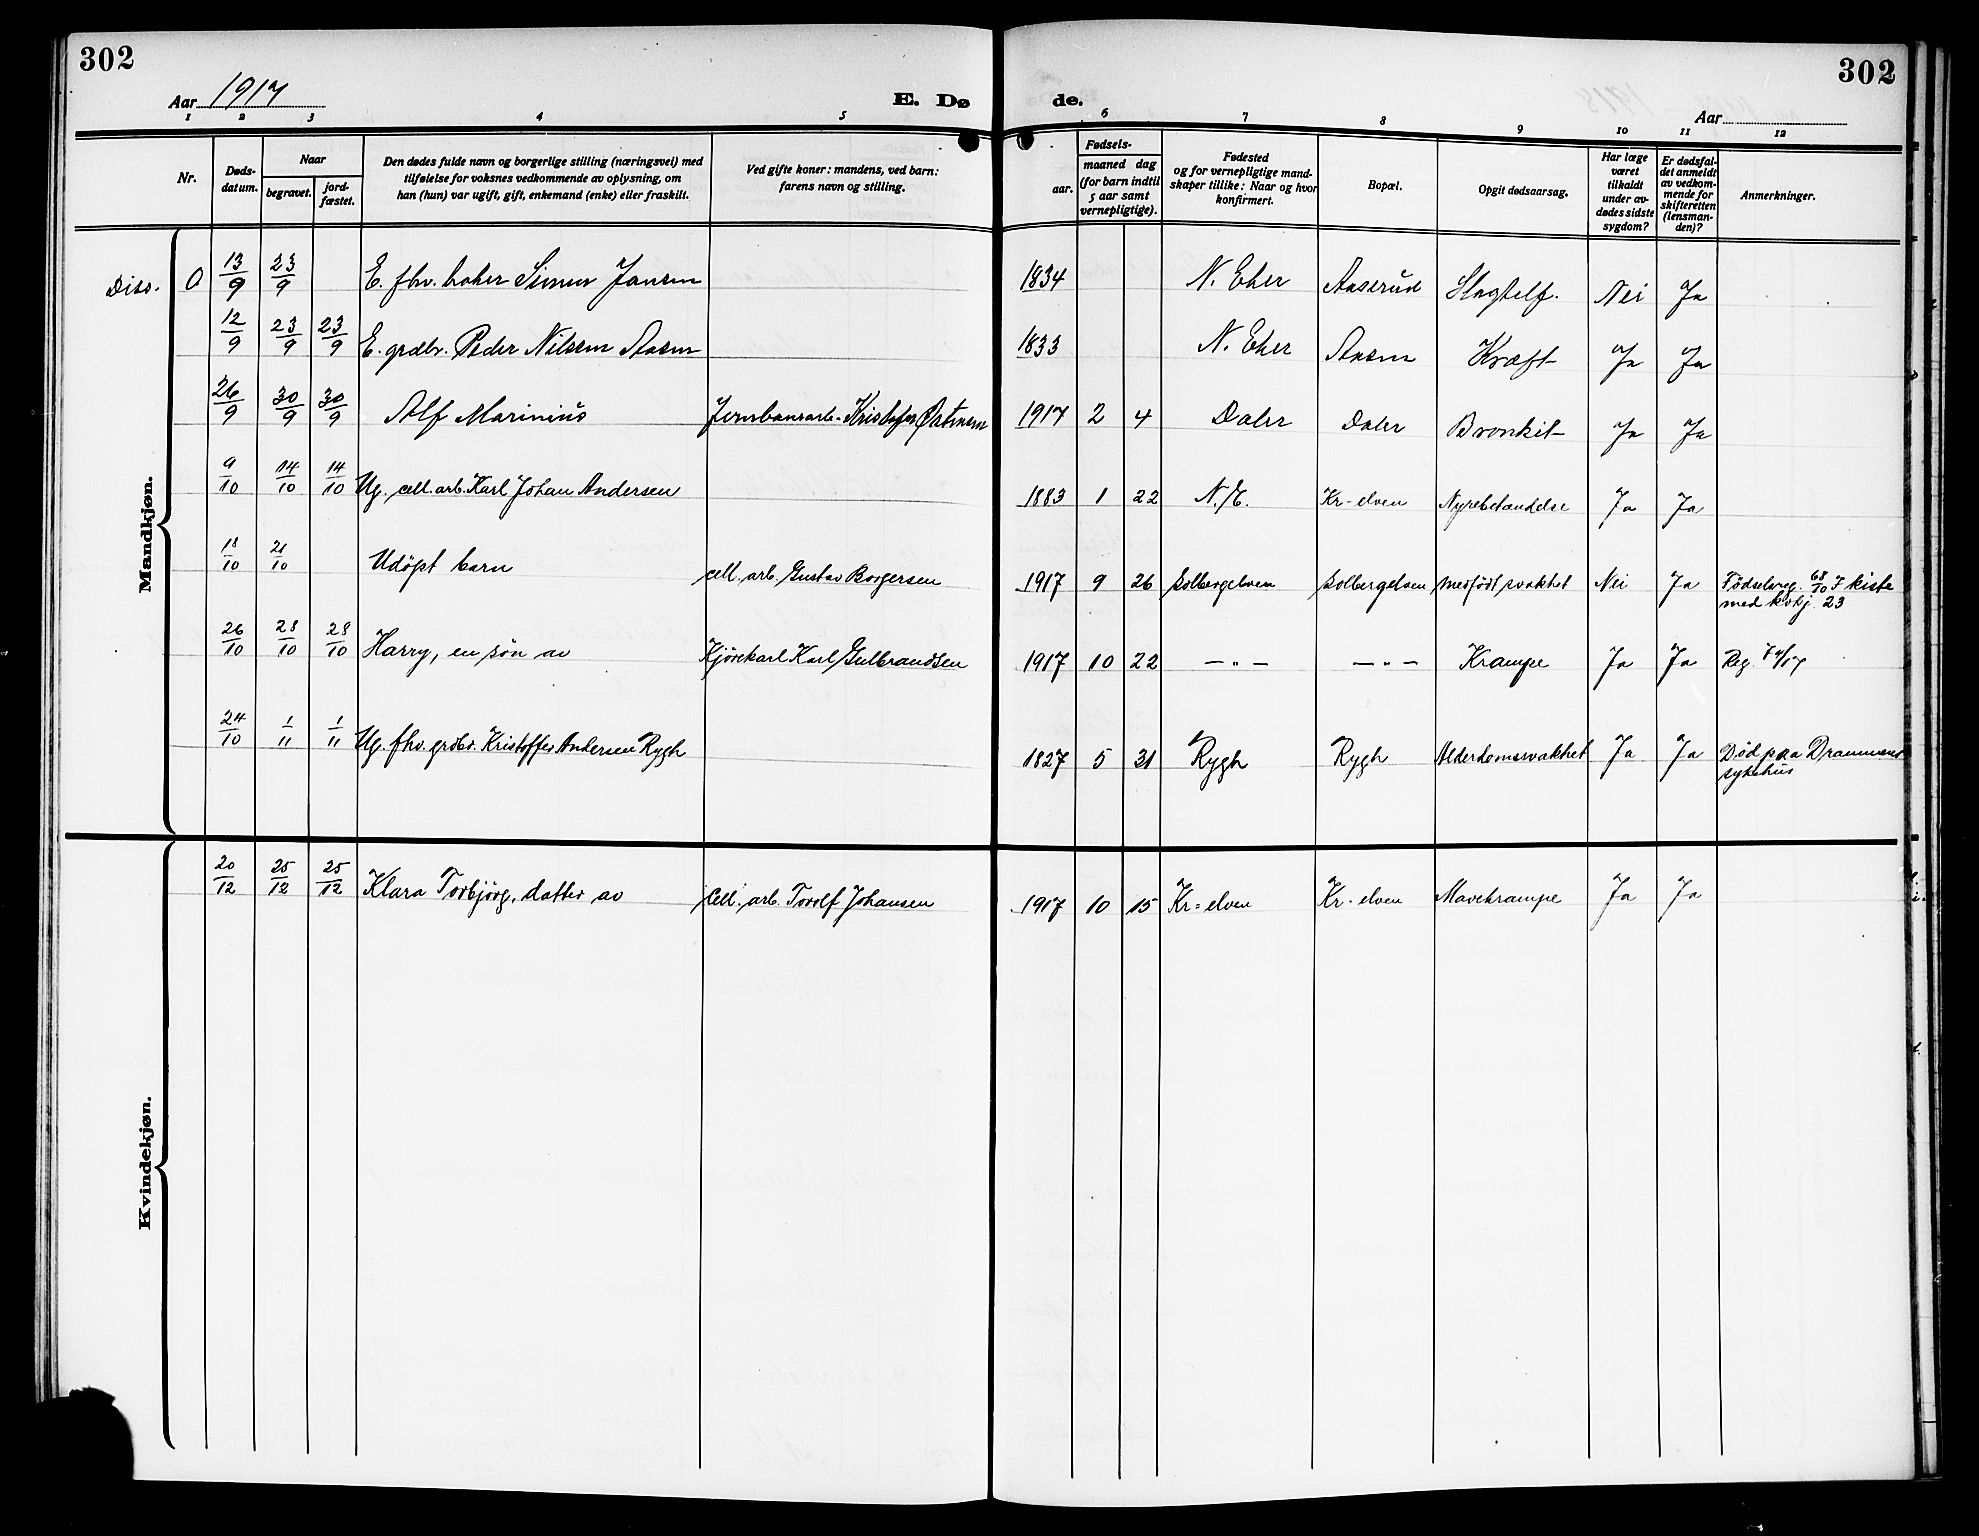 302
302
Aar 1917
E. Dø
de.
Aar
1 2 3 4 5 6 7 8 9 10 11 12
Nr.
Døds-
datum.
Naar
begravet.
jord-
fæstet.
Den dødes fulde navn og borgerlige stilling (næringsvei) med
tilføielse for voksnes vedkommende av oplysning, om
han (hun) var ugift, gift, enkemand (enke) eller fraskilt.
Ved gifte koner: mandens, ved barn:
farens navn og stilling.
Fødsels-
aar.
maaned dag
(for barn indtil
5 aar samt
vernepligtige).
Fødested
og for vernepligtige mand-
skaper tillike: Naar og hvor
konfirmert.
Bopæl.
Opgit dødsaarsag.
Har læge
været
tilkaldt
under av-
dødes sidste
sygdom?
Er dødsfal-
det anmeldt
av vedkom-
mende for
skifteretten
(lensman-
den)?
Anmerkninger.
Mandkjøn.
Diss. 0 13/9 23/9 E. fhv. baker Simen Jansen 1834 N. Eker Aaserud Slagtelf. Nei Ja
12/9 23/9 23/9 E. grdbr. Peder Nilssen Aasen 1833 N. Eker Aasen Kræft Ja Ja
26/9 30/9 30/9 Alf Marinius Jernbanearb. Kristofer Østensen 1917 2 4 Daler Daler Bronkit Ja Ja
9/10 14/10 14/10 Ug. cell. arb. Karl Johan Andersen 1883 1 22 N./E. Kr-elven Nyrebetændelse Ja Ja
18/10 21/10 Udöpt barn cell. arb. Gustav Borgersen 1917 9 26 Solbergelven Solbergelven medfödt svakhet Nei Ja Födselsreg. 68/10 I kiste
med kvkj. 23
26/10 28/10 28/10 Harry, en sön av Kjörekarl Karl Gulbrandsen 1917 10 22 — " — — " — Krampe Ja Ja Reg.
24/10 1/11 1/11 Ug. fhv. grdbr. Kristoffer Andersen Rygh 1827 5 31 Rygh Rygh Alderdomssvakhet Ja Ja Död paa Drammens
sykehus
Kvindekjøn.
20/12 25/12 25/12 Klara Torbjörg, datter av Cell. arb. Torolf Johansen 1917 10 15 Kr=elven Kr-elven Mavekrampe Ja Ja